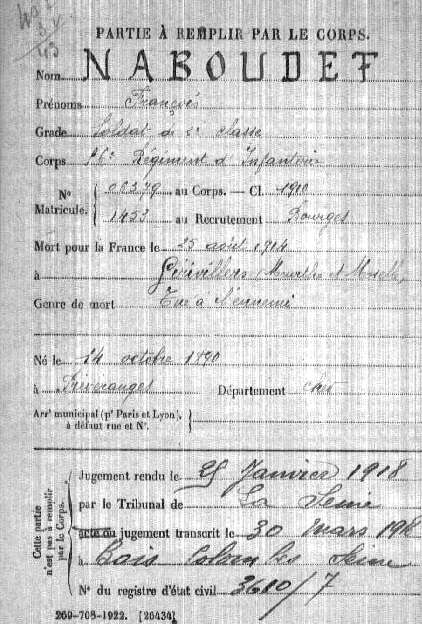 PARTIE À REMPLIR PAR LE CORPS.
Nom NABOUDET
Prénoms François
Grade Soldat de 2e classe
Corps Régiment d'Infanterie
No Matricule. 00379 au Corps. — Cl. 1910
1453 au Recrutement Bourges
Mort pour la France le 25 août 1914
à (Meurthe et Moselle)
Genre de mort Tué à l'ennemi
Né le 14 octobre 1890
à Préveranges Département Cher
Arrt municipal (pr Paris et Lyon),
à défaut rue et No.
Cette partie n'est pas à remplir par le Corps.
Jugement rendu le 25 Janvier 1918
par le Tribunal de La Seine
acte ou jugement transcrit le 30 mars 1918
à Bois Colombes Seine
No du registre d'état civil 3610/7
269-708-1922. [26434]